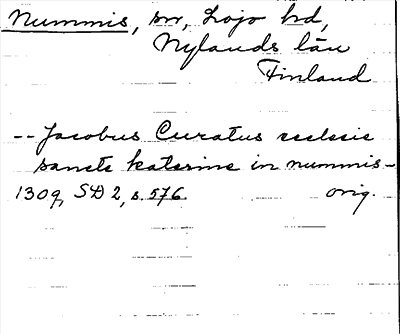 Nummis, sn, Lojo hd,
Nylands län
Finland
-- Jacobus Curatus ecclesie
sancte katerine in nummis -
1309, SD 2, s. 576. orig.